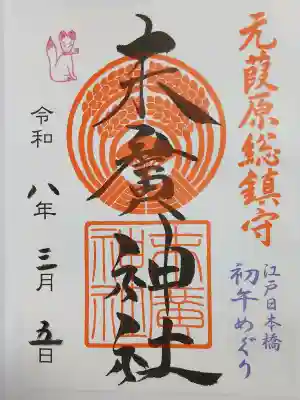 元葭原総鎮守
江戸日本橋
初午めぐり
末廣神社
末廣神社
令和八年三月五日